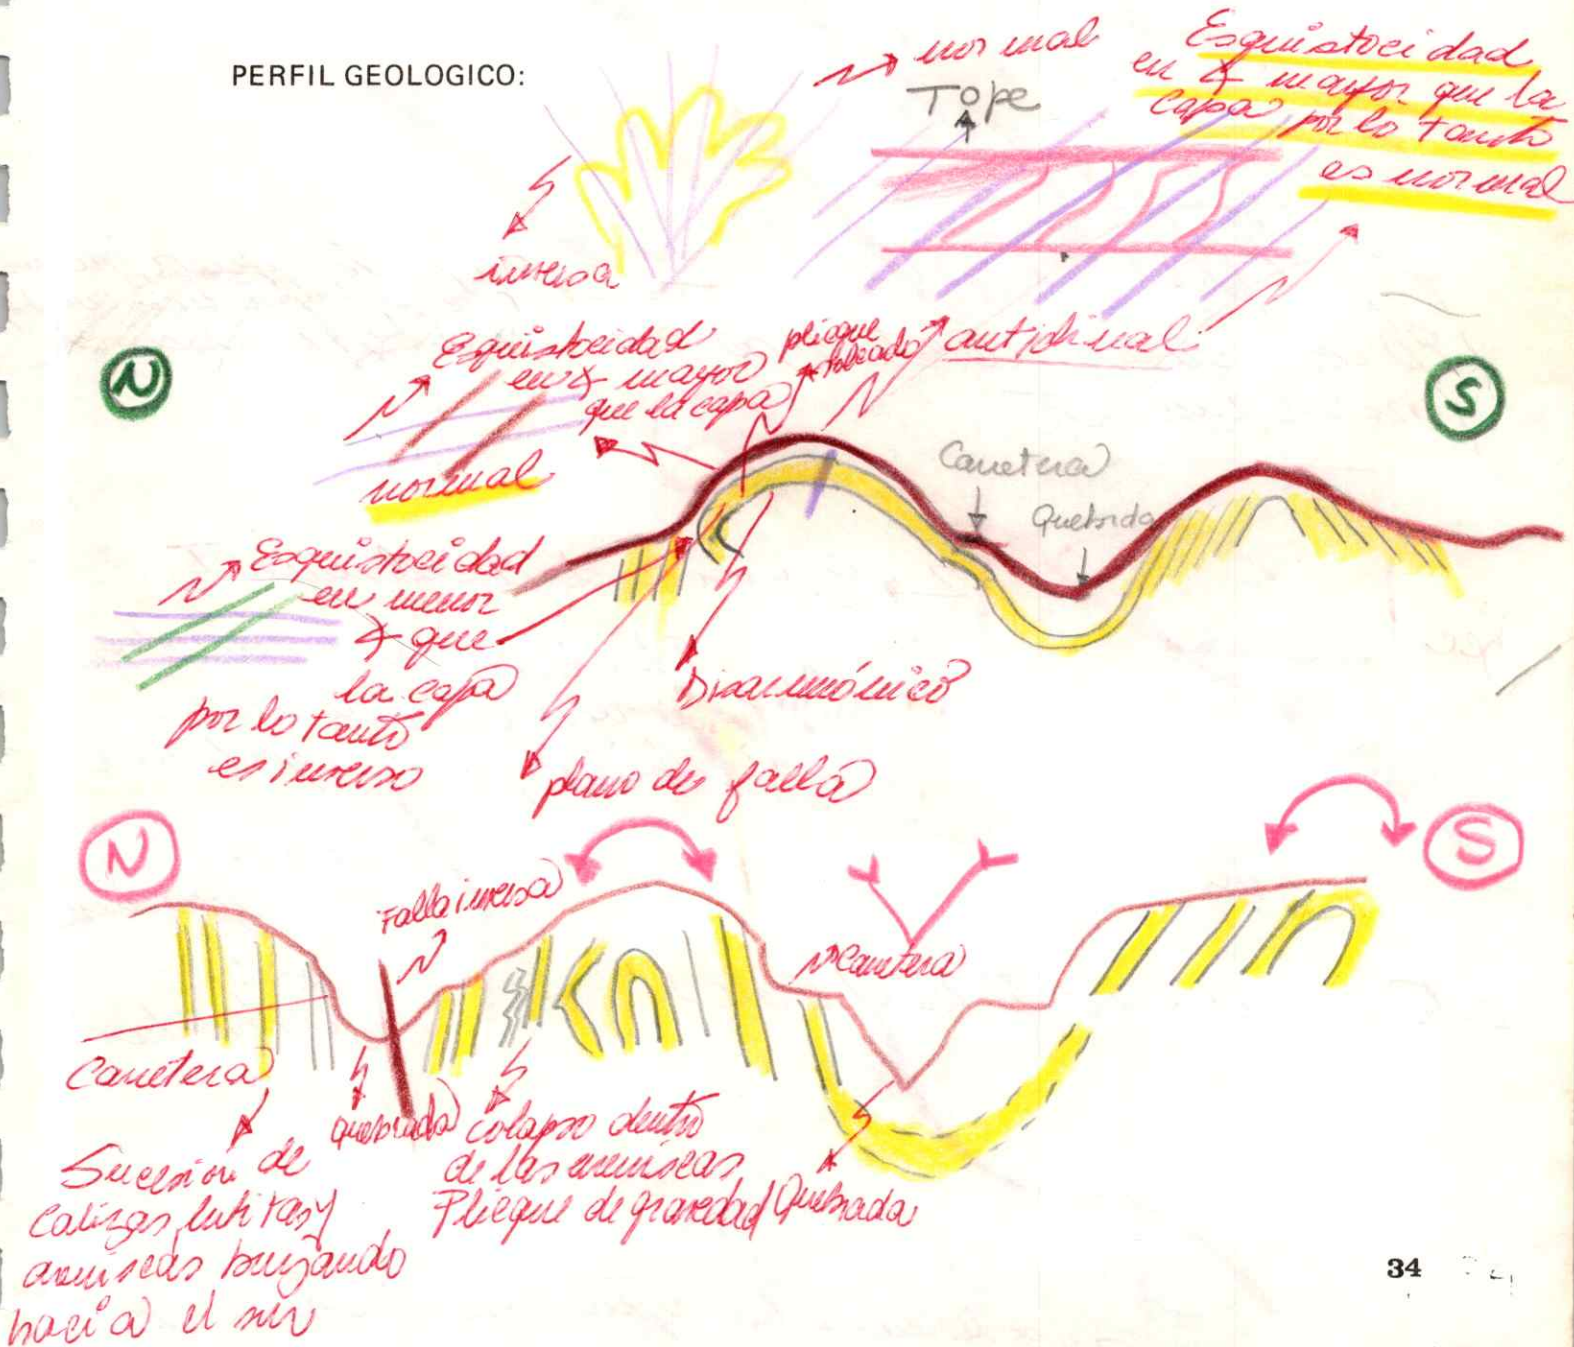 PERFIL GEOLOGICO:
normal
Tope
Esquistocidad
en ∡ mayor que la
capa por lo tanto
es normal
inversa
Esquistocidad
en ∡ mayor
que la capa
normal
pliegue
volcado
anticlinal
N
S
Carretera
Quebrada
Esquistocidad
en menor
∡ que
la capa
por lo tanto
es inverso
Disarmónico
plano de falla
N
S
Falla inversa
Carretera
Carretera
quebrada
Sucesión de
calizas, lutitas y
areniscas buzando
hacia el sur
colapso dentro
de las areniscas
Pliegue de gravedad
Quebrada
34